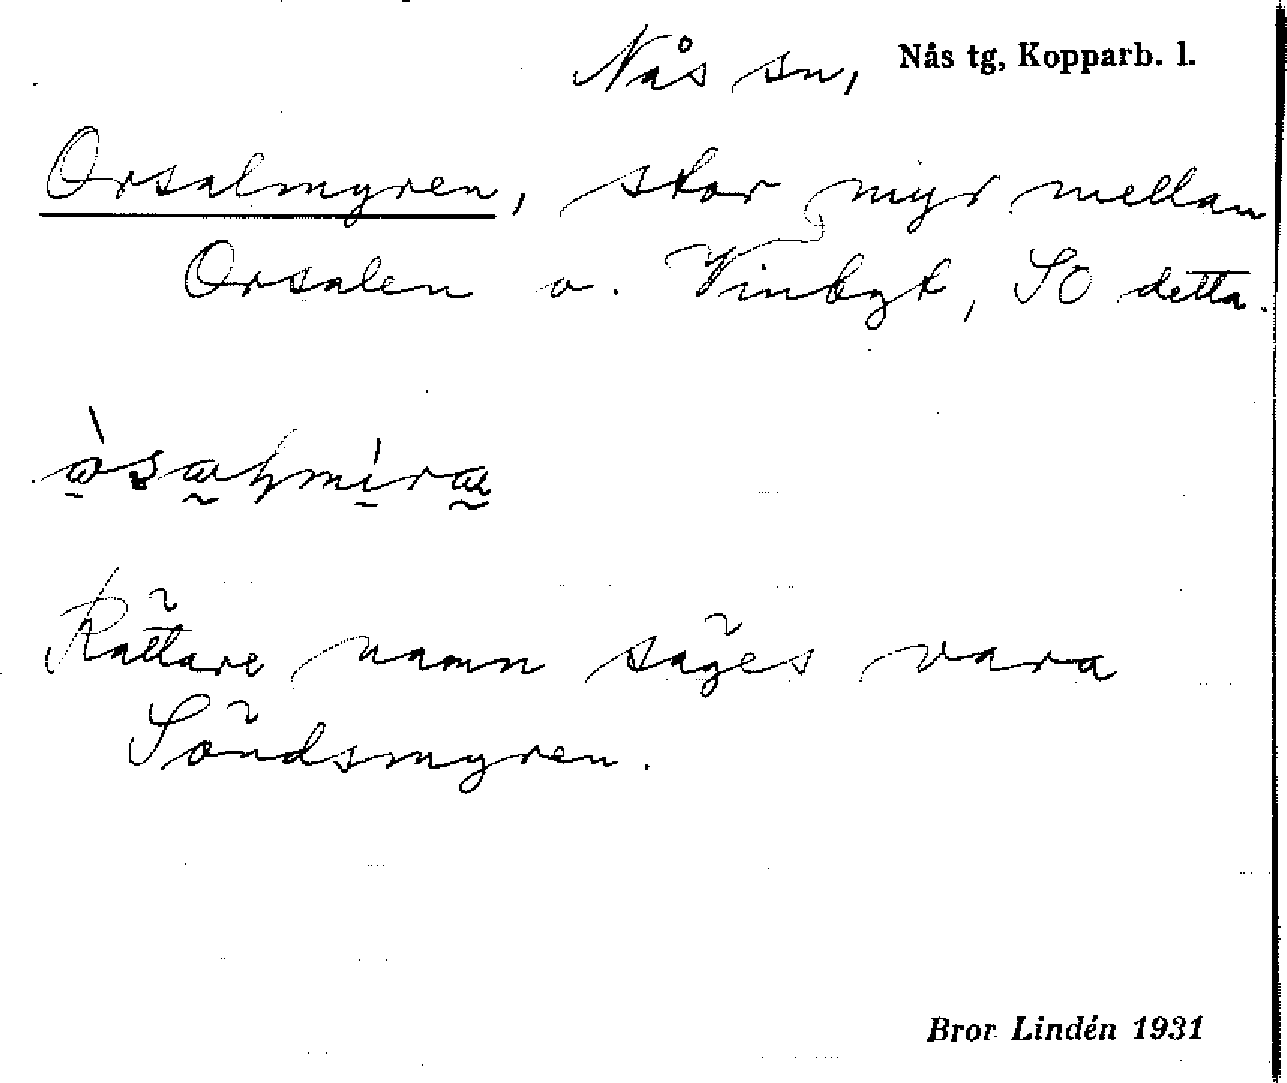 Nås sn, Nås tg, Kopparb. l.
Orsalmyren, stor myr mellan
Orsalen o. Vinbyt, SO detta.
Rättare namn säges vara
Söndsmyren.
Bror Lindén 1931